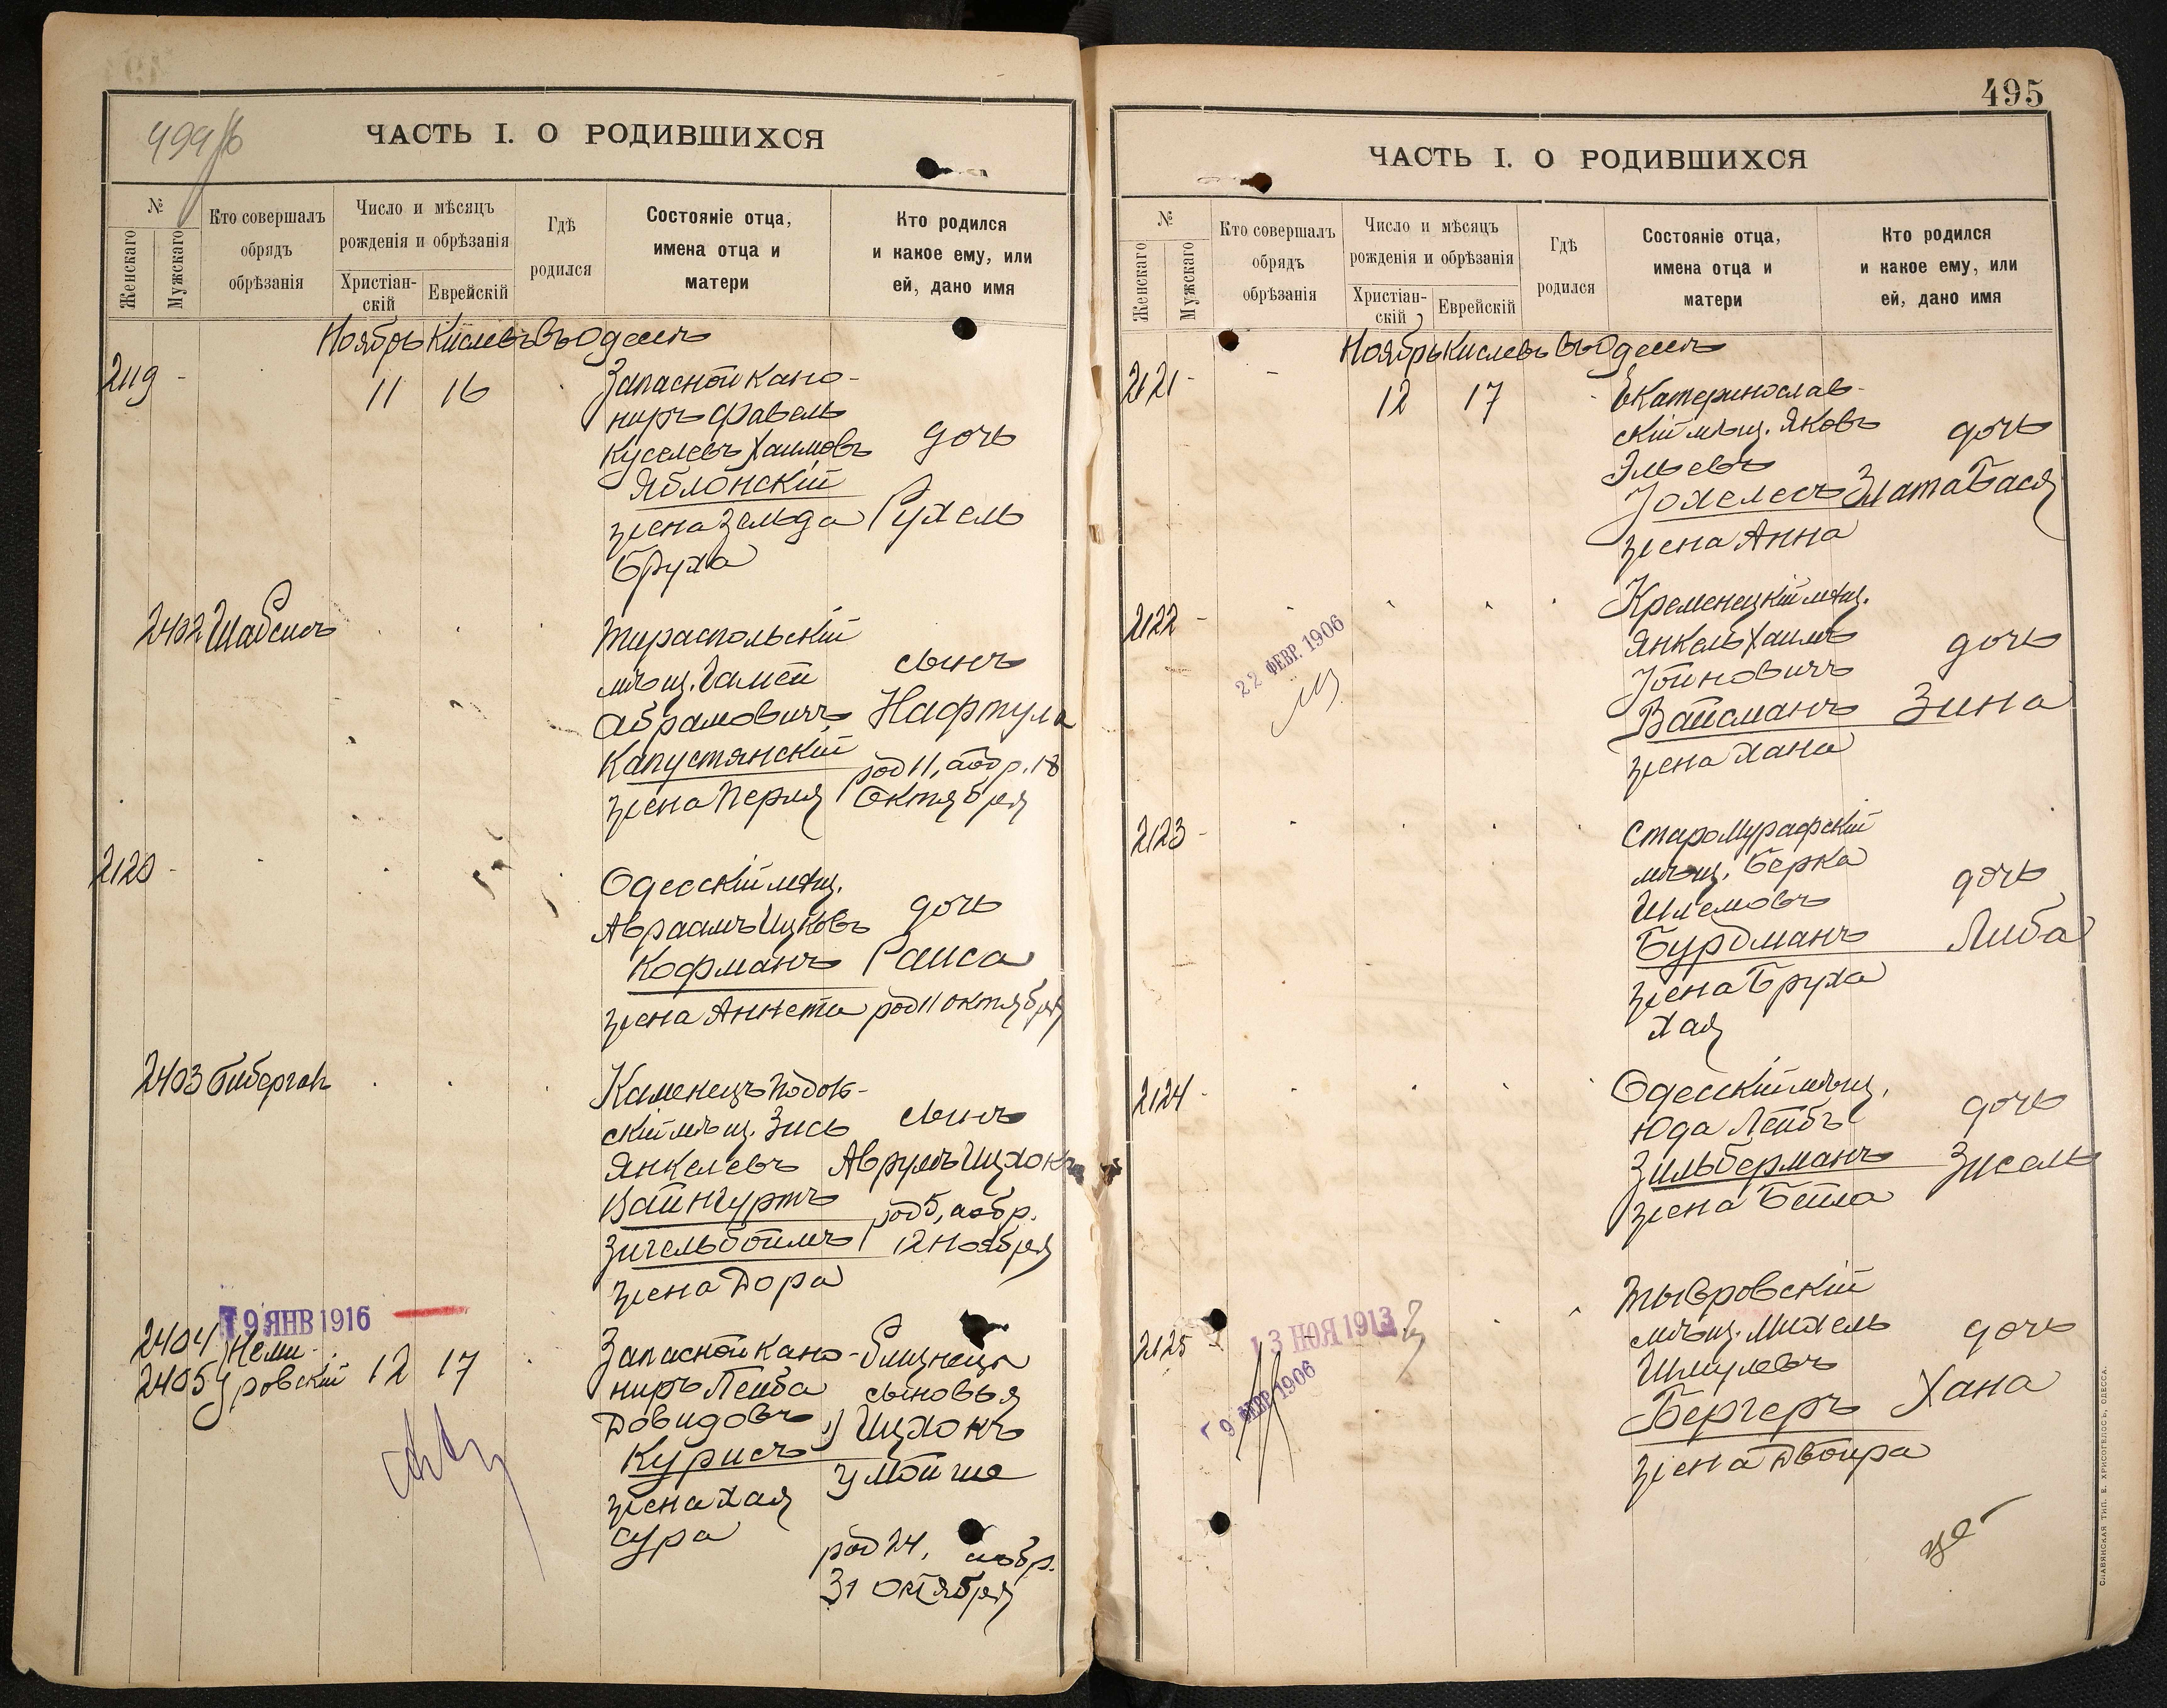 ЧАСТЬ I. О РОДИВШИХСЯ
№
Женскаго
Мужскаго
Кто совершалъ
обрядъ
обрѣзанія
Число и мѣсяцъ
рожденія и обрѣзанія
Христіан-
скій
Еврейскій
Гдѣ
родился
Состояніе отца,
имена отца и
матери
Кто родился
и какое ему, или
ей, дано имя
Ноябрь Кислевъ въ Одессѣ
2119 -
11 16
Запасной кано-
ниръ Фавель
Куселевъ Хаимовъ
Яблонскій
жена Зельда
Бруха
дочь
Рухель
2402 Шабсисъ
Тираспольскій
мѣщ.
Абрамовичъ
Капустянскій
жена Перля
сынъ
Нафтула
род 11, а обр. 18
Октября
2120 -
Одесскій мѣщ.
Авраамъ Ицковъ
Кофманъ
жена Аннета
дочь
Раиса
род 11 октября
2403
Каменецъ Подоль-
скій мѣщ. Зись
Янкелевъ
Вайнгуртъ
Зигельбоймъ
жена Дора
сынъ
Аврумъ Ицхокъ
род 5, а обр.
12 Ноября
19 ЯНВ 1916
2404
2405
Неми-
ровскій
12 17
Запасной кано-
ниръ Лейба
Довидовъ
Курисъ
жена Хая
Сура
Близнецы
сыновья
1) Ицхокъ
2) Мойше
род 24, а обр.
31 октября
495
ЧАСТЬ I. О РОДИВШИХСЯ
№
Женскаго
Мужскаго
Кто совершалъ
обрядъ
обрѣзанія
Число и мѣсяцъ
рожденія и обрѣзанія
Христіан-
скій
Еврейскій
Гдѣ
родился
Состояніе отца,
имена отца и
матери
Кто родился
и какое ему, или
ей, дано имя
Ноябрь Кислевъ въ Одессѣ
2121 -
12 17
Екатеринослав-
скій мѣщ. Яковъ
Эльевъ
Іохелесъ
жена Анна
дочь
Злата Бася
2122 -
22 ФЕВР. 1906
Кременецкій мѣщ.
Янкель Хаимъ
Іойновичъ
Вайсманъ
жена Хана
дочь
Зина
2123 -
Старо Мурафскій
мѣщ. Берка
Шлемовъ
Бурдманъ
жена Бруха
Хая
дочь
Либа
2124 -
Одесскій мѣщ.
Юда Лейбъ
Зильберманъ
жена Бейла
дочь
Зисель
2125
13 НОЯ 1913
9 ФЕВР 1906
Тывровскій
мѣщ. Михель
Шмулевъ
Бергеръ
жена Двойра
дочь
Хана
СЛАВЯНСКАЯ ТИП. Е. ХРИСОГЕЛОСЪ, ОДЕССА.